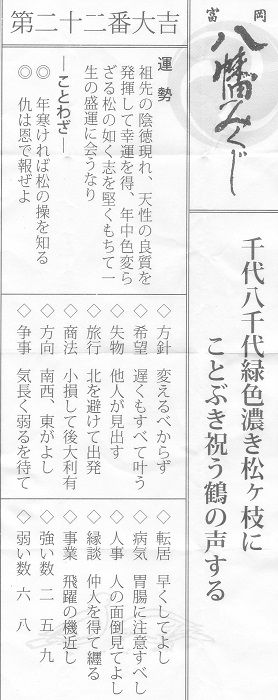 富岡
八幡みくじ
千代八千代緑色濃き松ヶ枝に
ことぶき祝う鶴の声する
第二十二番大吉
運勢
祖先の陰徳現れ、天性の良質を
発揮して幸運を得、年中色変ら
ざる松の如く志を堅くもちて一
生の盛運に会うなり
―ことわざ―
◎ 年寒ければ松の操を知る
◎ 仇は恩で報ぜよ
◇ 方針 変えるべからず
◇ 希望 遅くもすべて叶う
◇ 失物 他人が見出す
◇ 旅行 北を避けて出発
◇ 商法 小損して後大利有
◇ 方向 南西、東がよし
◇ 争事 気長く弱るを待て
◇ 転居 早くしてよし
◇ 病気 胃腸に注意すべし
◇ 人事 人の面倒見てよし
◇ 縁談 仲人を得て纏る
◇ 事業 飛躍の機近し
◇ 強い数 二 五 九
◇ 弱い数 六 八